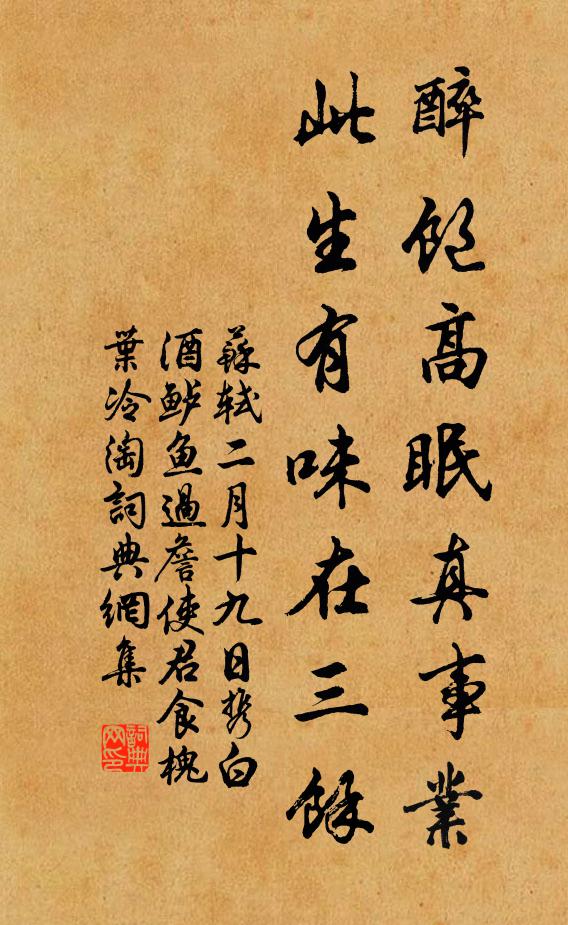 醉飽高眠真事業
此生有味在三餘
蘇軾二月十九日携白
酒鲈魚過詹使君食槐
葉冷淘詞典網集
詞典
网印